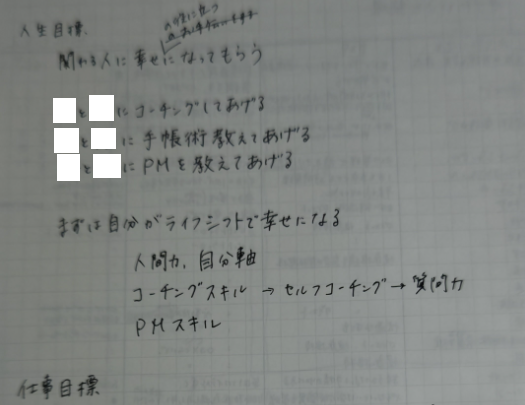 人生目標
関わる人に幸せになってもらう
と にコーチングしてあげる
と に手帳術教えてあげる
と にPMを教えてあげる
まずは自分がライフシフトで幸せになる
人間力、自分軸
コーチングスキル → セルフコーチング → 質問力
PMスキル
仕事目標